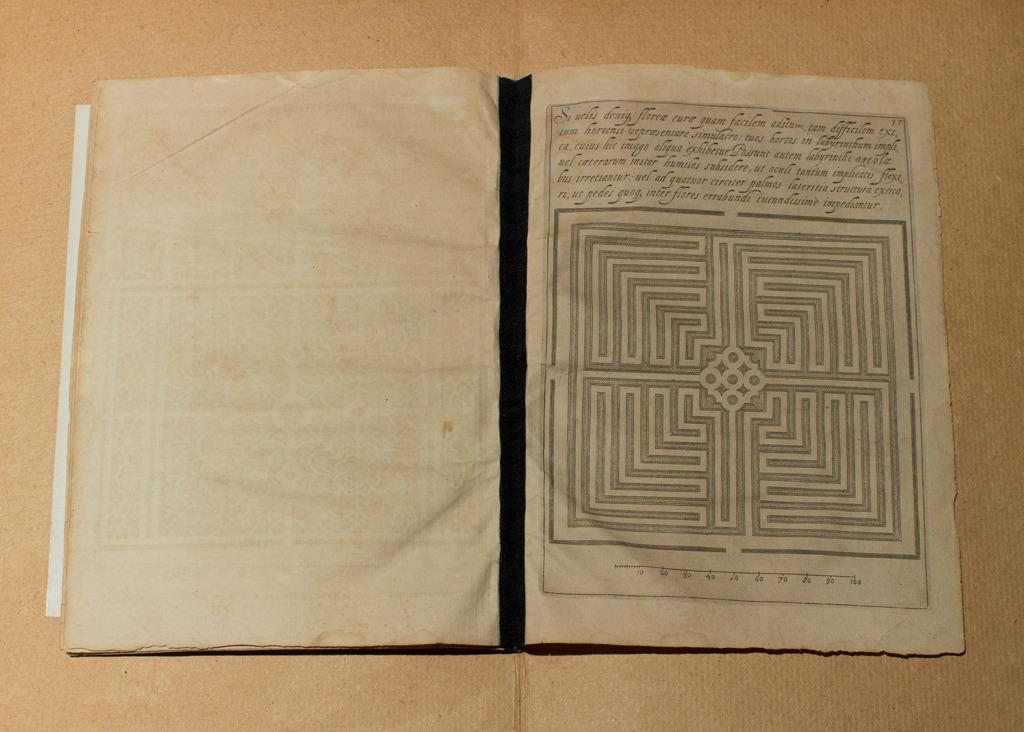 37
Si uelis deniq, floreæ curæ quam facilem aditum, tam difficilem exi,
tum hortensi repræsentare simulacro: tuos hortos in labyrinthum impli,
ca, cuius hic imago aliqua exhibetur. Possunt autem labyrinthi areolæ
uel cæterarum instar humiles subsidere, ut oculi tantum implicatis flexi,
bus irretiantur: uel ad quatuor circiter palmos lateritia structura excita,
ri, ut pedes quoq, inter flores errabundi iucundissime impediantur.
10 20 30 40 50 60 70 80 90 100